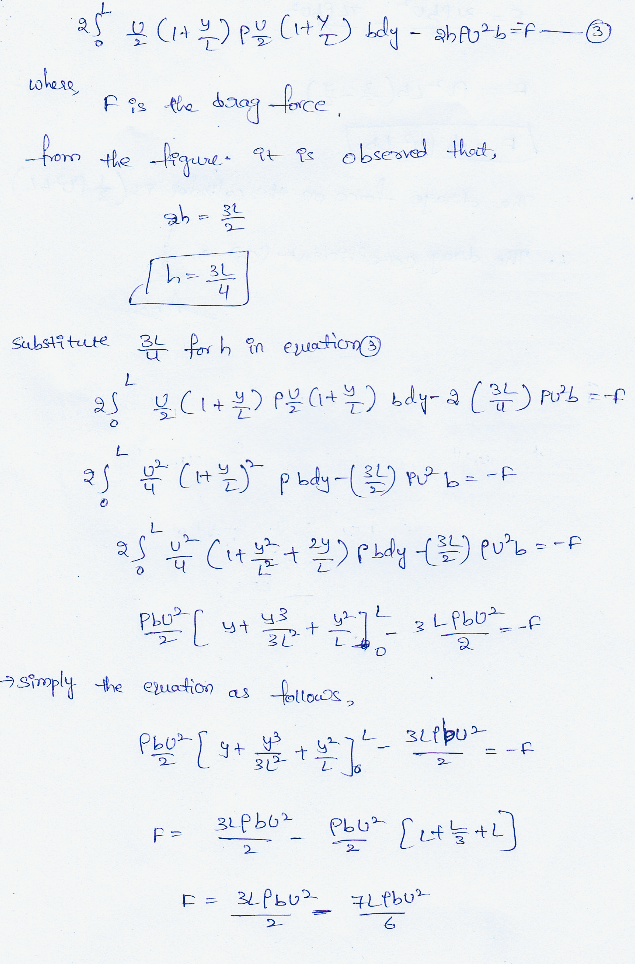 2∫₀ᴸ U/2 (1+ y/L) ρ U/2 (1+ y/L) bdy - 2hρU²b = -F — ③
where,
F is the drag force.
from the figure. it is observed that,
2h = 3L/2
h = 3L/4
substitute 3L/4 for h in equation ③
2∫₀ᴸ U/2 (1+ y/L) ρ U/2 (1+ y/L) bdy - 2 (3L/4) ρU²b = -F
2∫₀ᴸ U²/4 (1+ y/L)² ρ bdy - (3L/2) ρU² b = -F
2∫₀ᴸ U²/4 (1+ y²/L² + 2y/L) ρ bdy - (3L/2) ρU²b = -F
ρbU²/2 [ y + y³/3L² + y²/L ]₀ᴸ - 3LρbU²/2 = -F
→ simply the equation as follows,
ρbU²/2 [ y + y³/3L² + y²/L ]₀ᴸ - 3LρbU²/2 = -F
F = 3LρbU²/2 - ρbU²/2 [L + L/3 + L]
F = 3LρbU²/2 - 7LρbU²/6